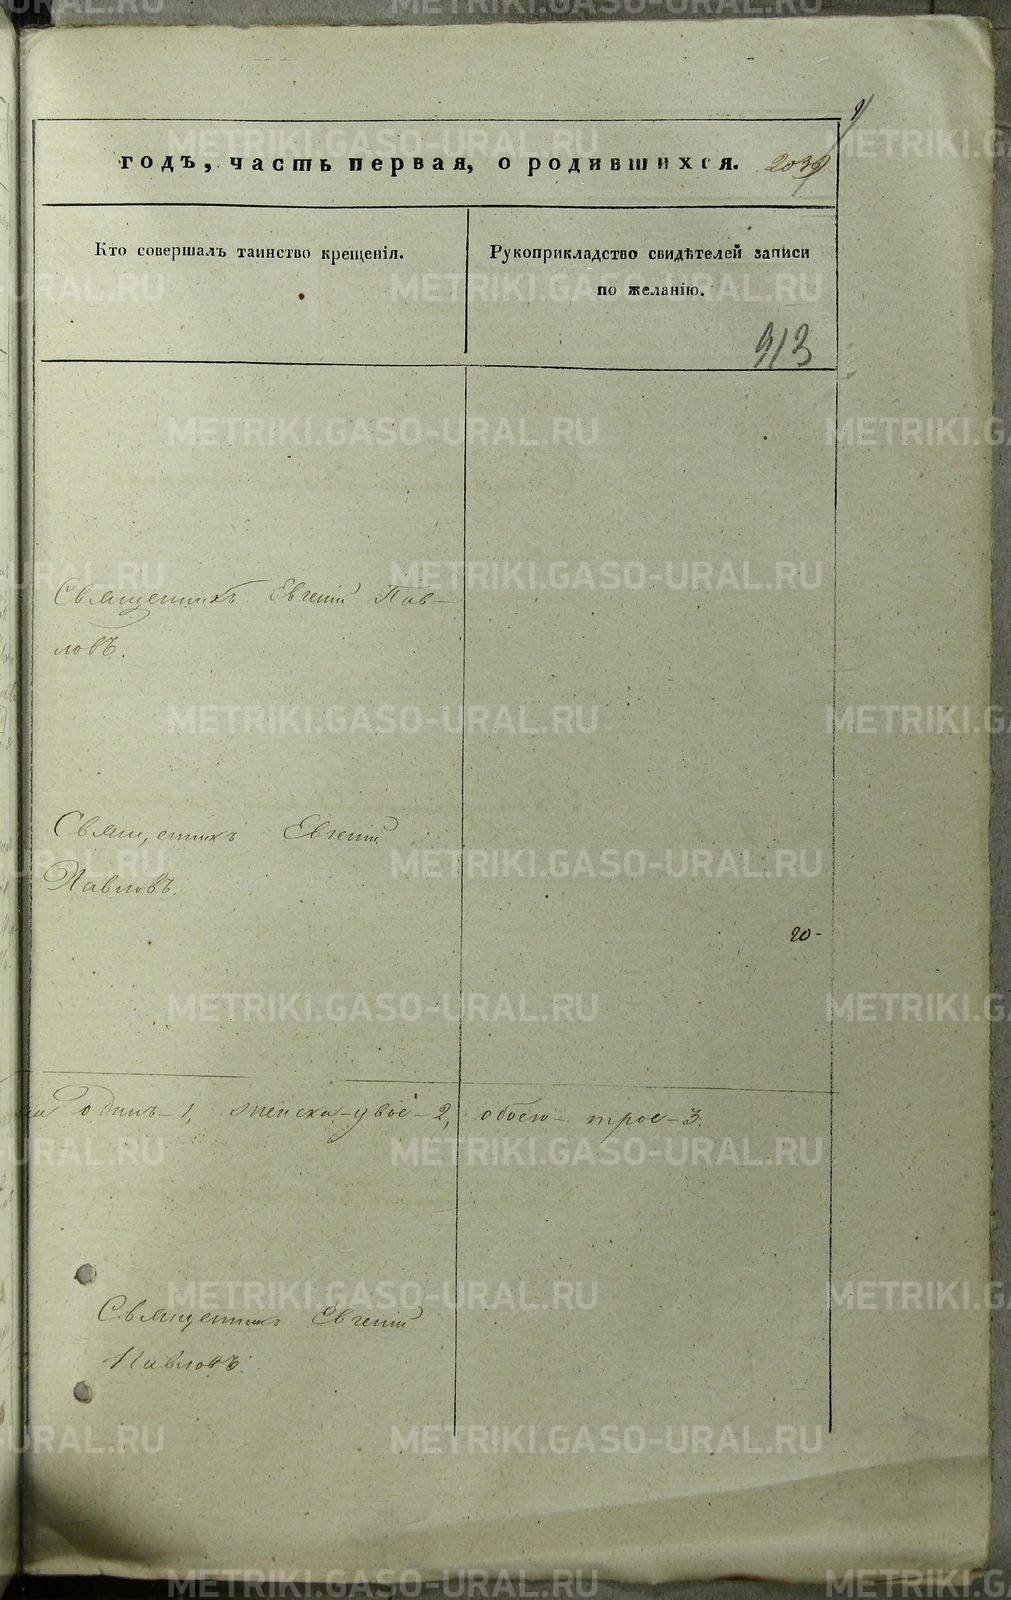 годъ, часть первая, о родившихся.
Кто совершалъ таинство крещенія.
Рукоприкладство свидѣтелей записи
по желанію.
313
Священникъ Евгеній Пав-
ловъ.
Священникъ Евгеній
Павловъ.
20-
одинъ-1, женска-двое-2, обоего-трое-3.
Священникъ Евгеній
Павловъ.
METRIKI.GASO-URAL.RU